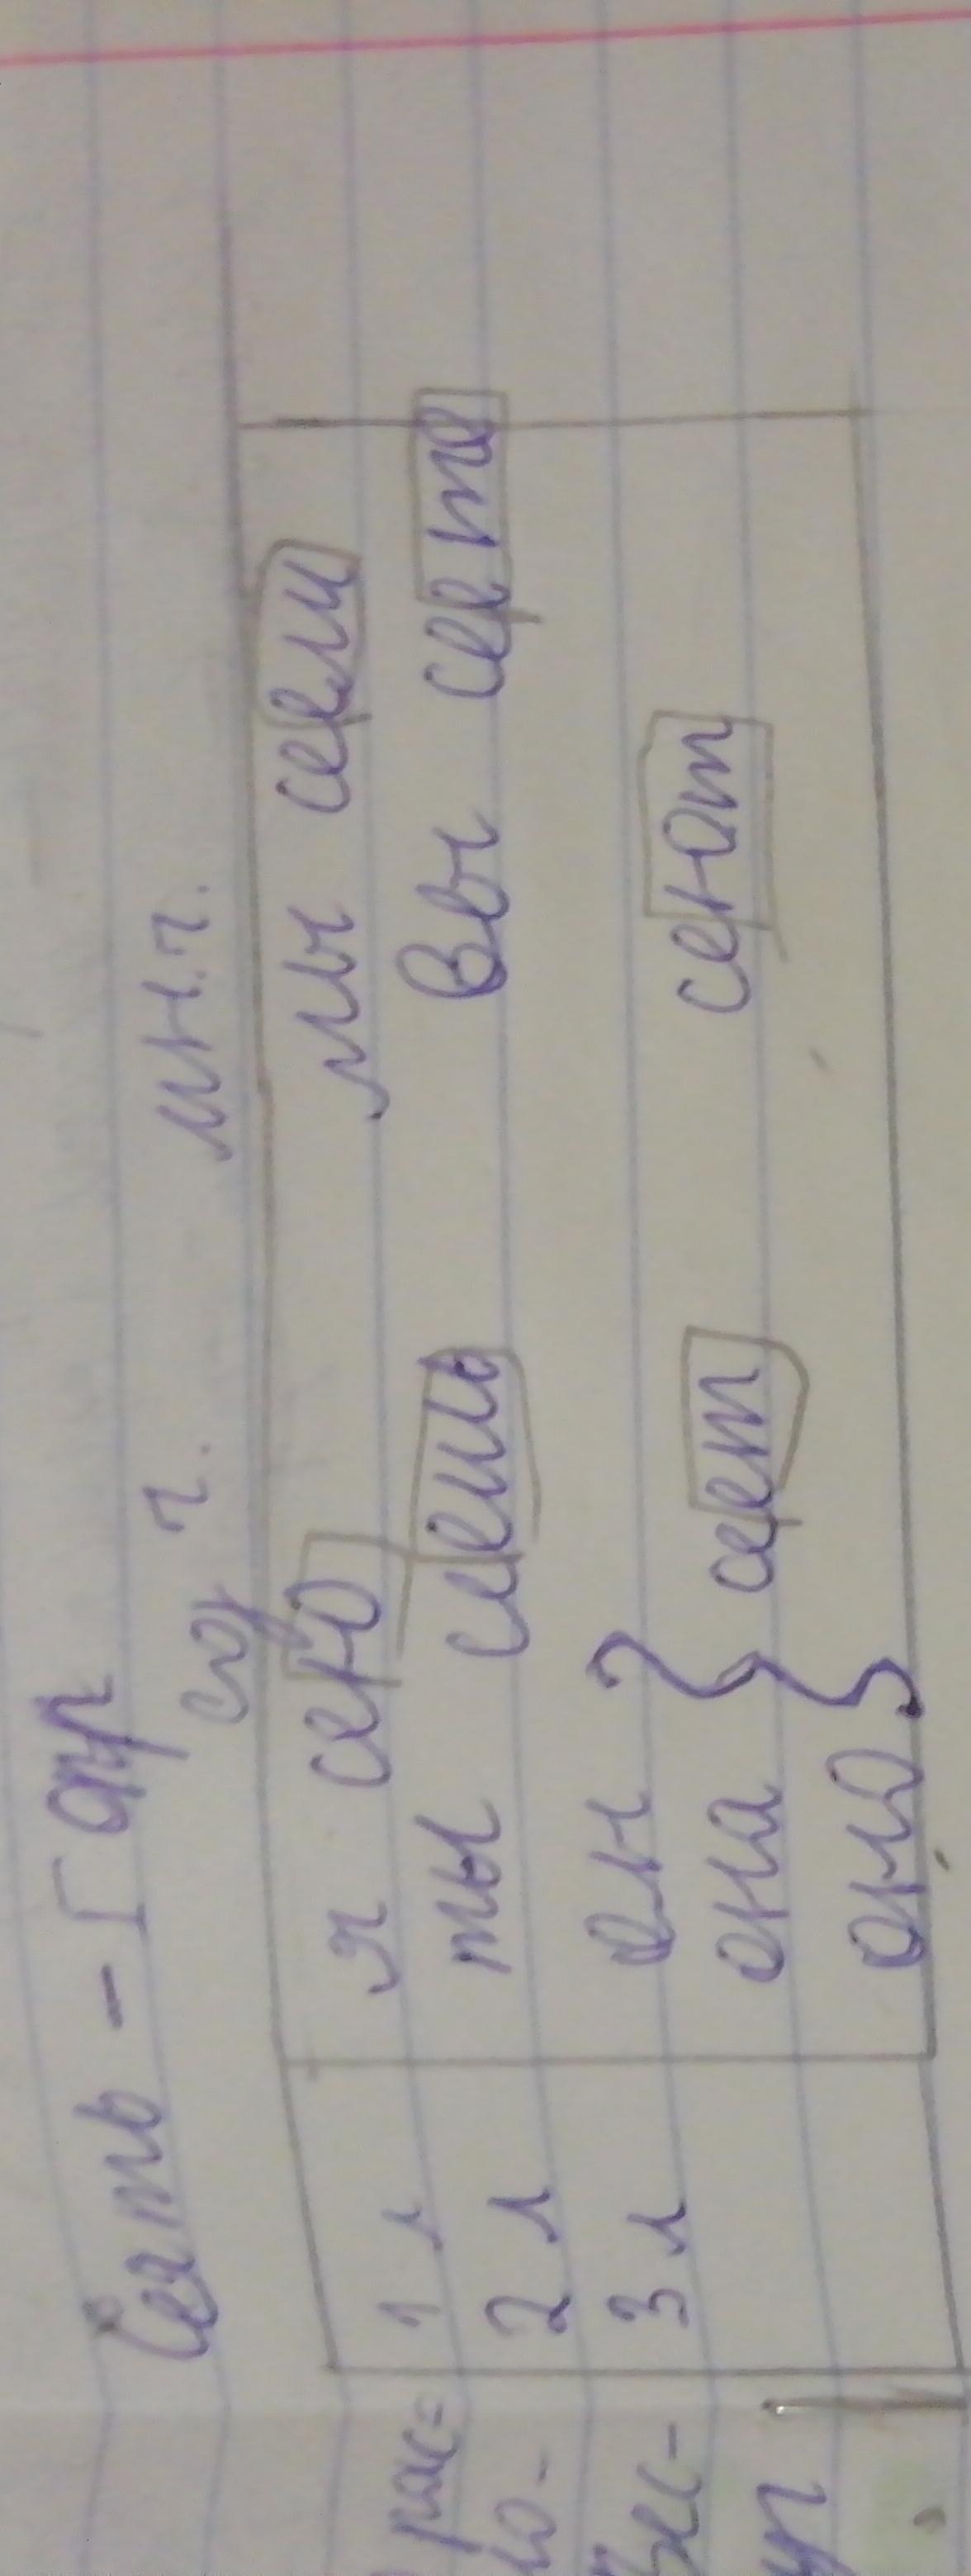 Сеять - I спр
ед ч. мн.ч.
1 л я сею мы сеем
2 л ты сеешь Вы сеете
3 л он
она сеет сеют
оно
рас=
ю-